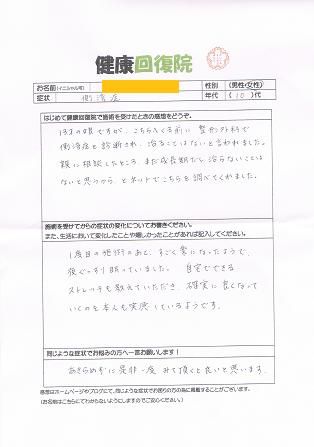 健康回復院
お名前(イニシャル可)
性別
(男性・女性)
症状
側湾症
年代
(10)代
はじめて健康回復院で施術を受けたときの感想をどうぞ。
13才の娘ですが、こちらへくる前に整形外科で
側湾症と診断され、治ることはないと言われました。
親に相談したところ、まだ成長期だし治らないことは
ないと思うから、とネットでこちらを調べてくれました。
施術を受けてからの症状の変化についてお書きください。
また、生活において変化したことや嬉しかったことがあれば記入してください。
1度目の施術のあと、すごく楽になったようで、
夜ぐっすり眠っていました。自宅でできる
ストレッチも教えていただき、確実に良くなって
いくのを本人も実感しているようです。
同じような症状でお悩みの方へ一言お願いします！
あきらめずに是非一度みて頂くと良いと思います。
感想はホームページやブログにて、同じような症状でお困りの方の為に掲載することがございます。
(お名前はこちらにてわからないようにしますのでご安心ください。)